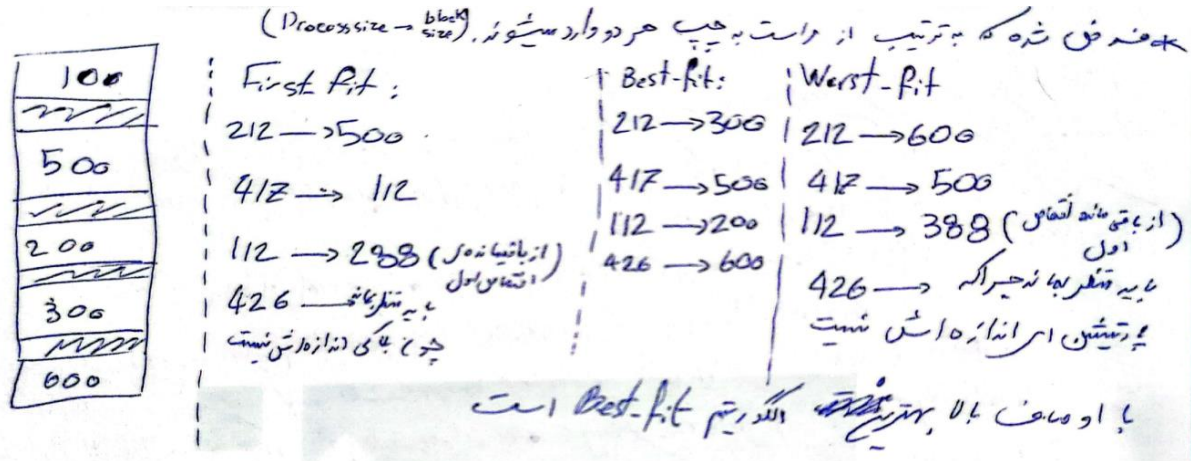 * فرض شده که به ترتیب از راست به چپ هر دو وارد میشوند. (Processsize → block size)
100
500
200
300
600
First fit:
212 → 500
417 → 112
112 → 288 (از باقیمانده‌ی
اختصاص اول
426 → باید منتظر بماند
چون بلاکی اندازه‌اش نیست
Best-fit:
212 → 300
417 → 500
112 → 200
426 → 600
Worst-fit
212 → 600
417 → 500
112 → 388 (از باقی مانده اختصاص
اول)
426 → باید منتظر بماند چرا که
پارتیشن ای اندازه اش نیست
با اوصاف بالا بهترین الگوریتم Best-fit است